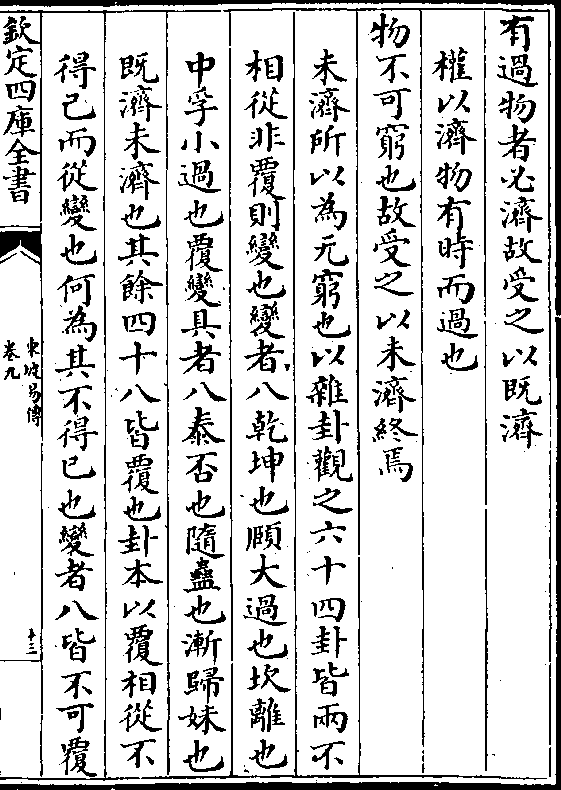 有過物者必濟故受之以既濟
權以濟物有時而過也
物不可窮也故受之以未濟終焉
未濟所以為无窮也以雜卦觀之六十四卦皆兩不
相從非覆則變也變者八乾坤也頤大過也坎離也
中孚小過也覆變具者八泰否也隨蠱也漸歸妹也
既濟未濟也其餘四十八皆覆也卦本以覆相從不
得已而從變也何為其不得已也變者八皆不可覆
欽定四庫全書
東坡易傳
卷九
十三